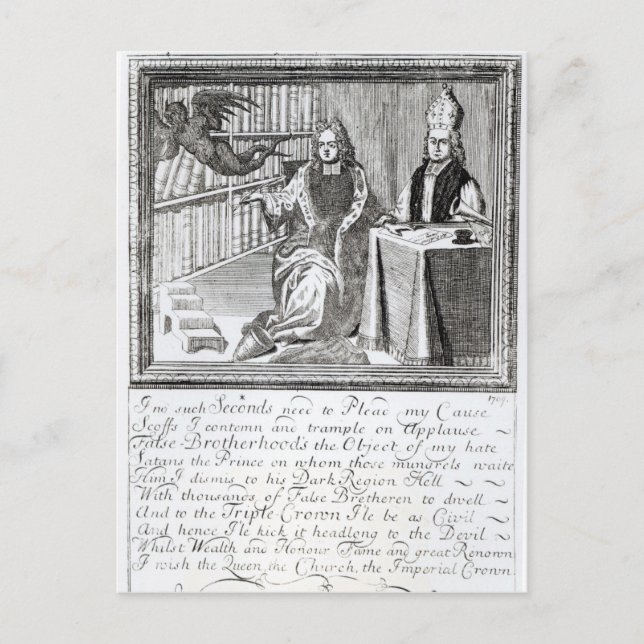 1709.
I no such Seconds need to Plead my Cause
Scoffs I contemn and trample on Applause
False-Brotherhood's the Object of my hate
Satans the Prince on whom those mungrels waite
Him I dismis to his Dark Region Hell
With thousands of False Bretheren to dwell
And to the Triple-Crown I'le be as Civil
And hence I'le kick it headlong to the Devil
Whilst Wealth and Honour Fame and great Renown
I wish the Queen, the Church, the Imperial Crown